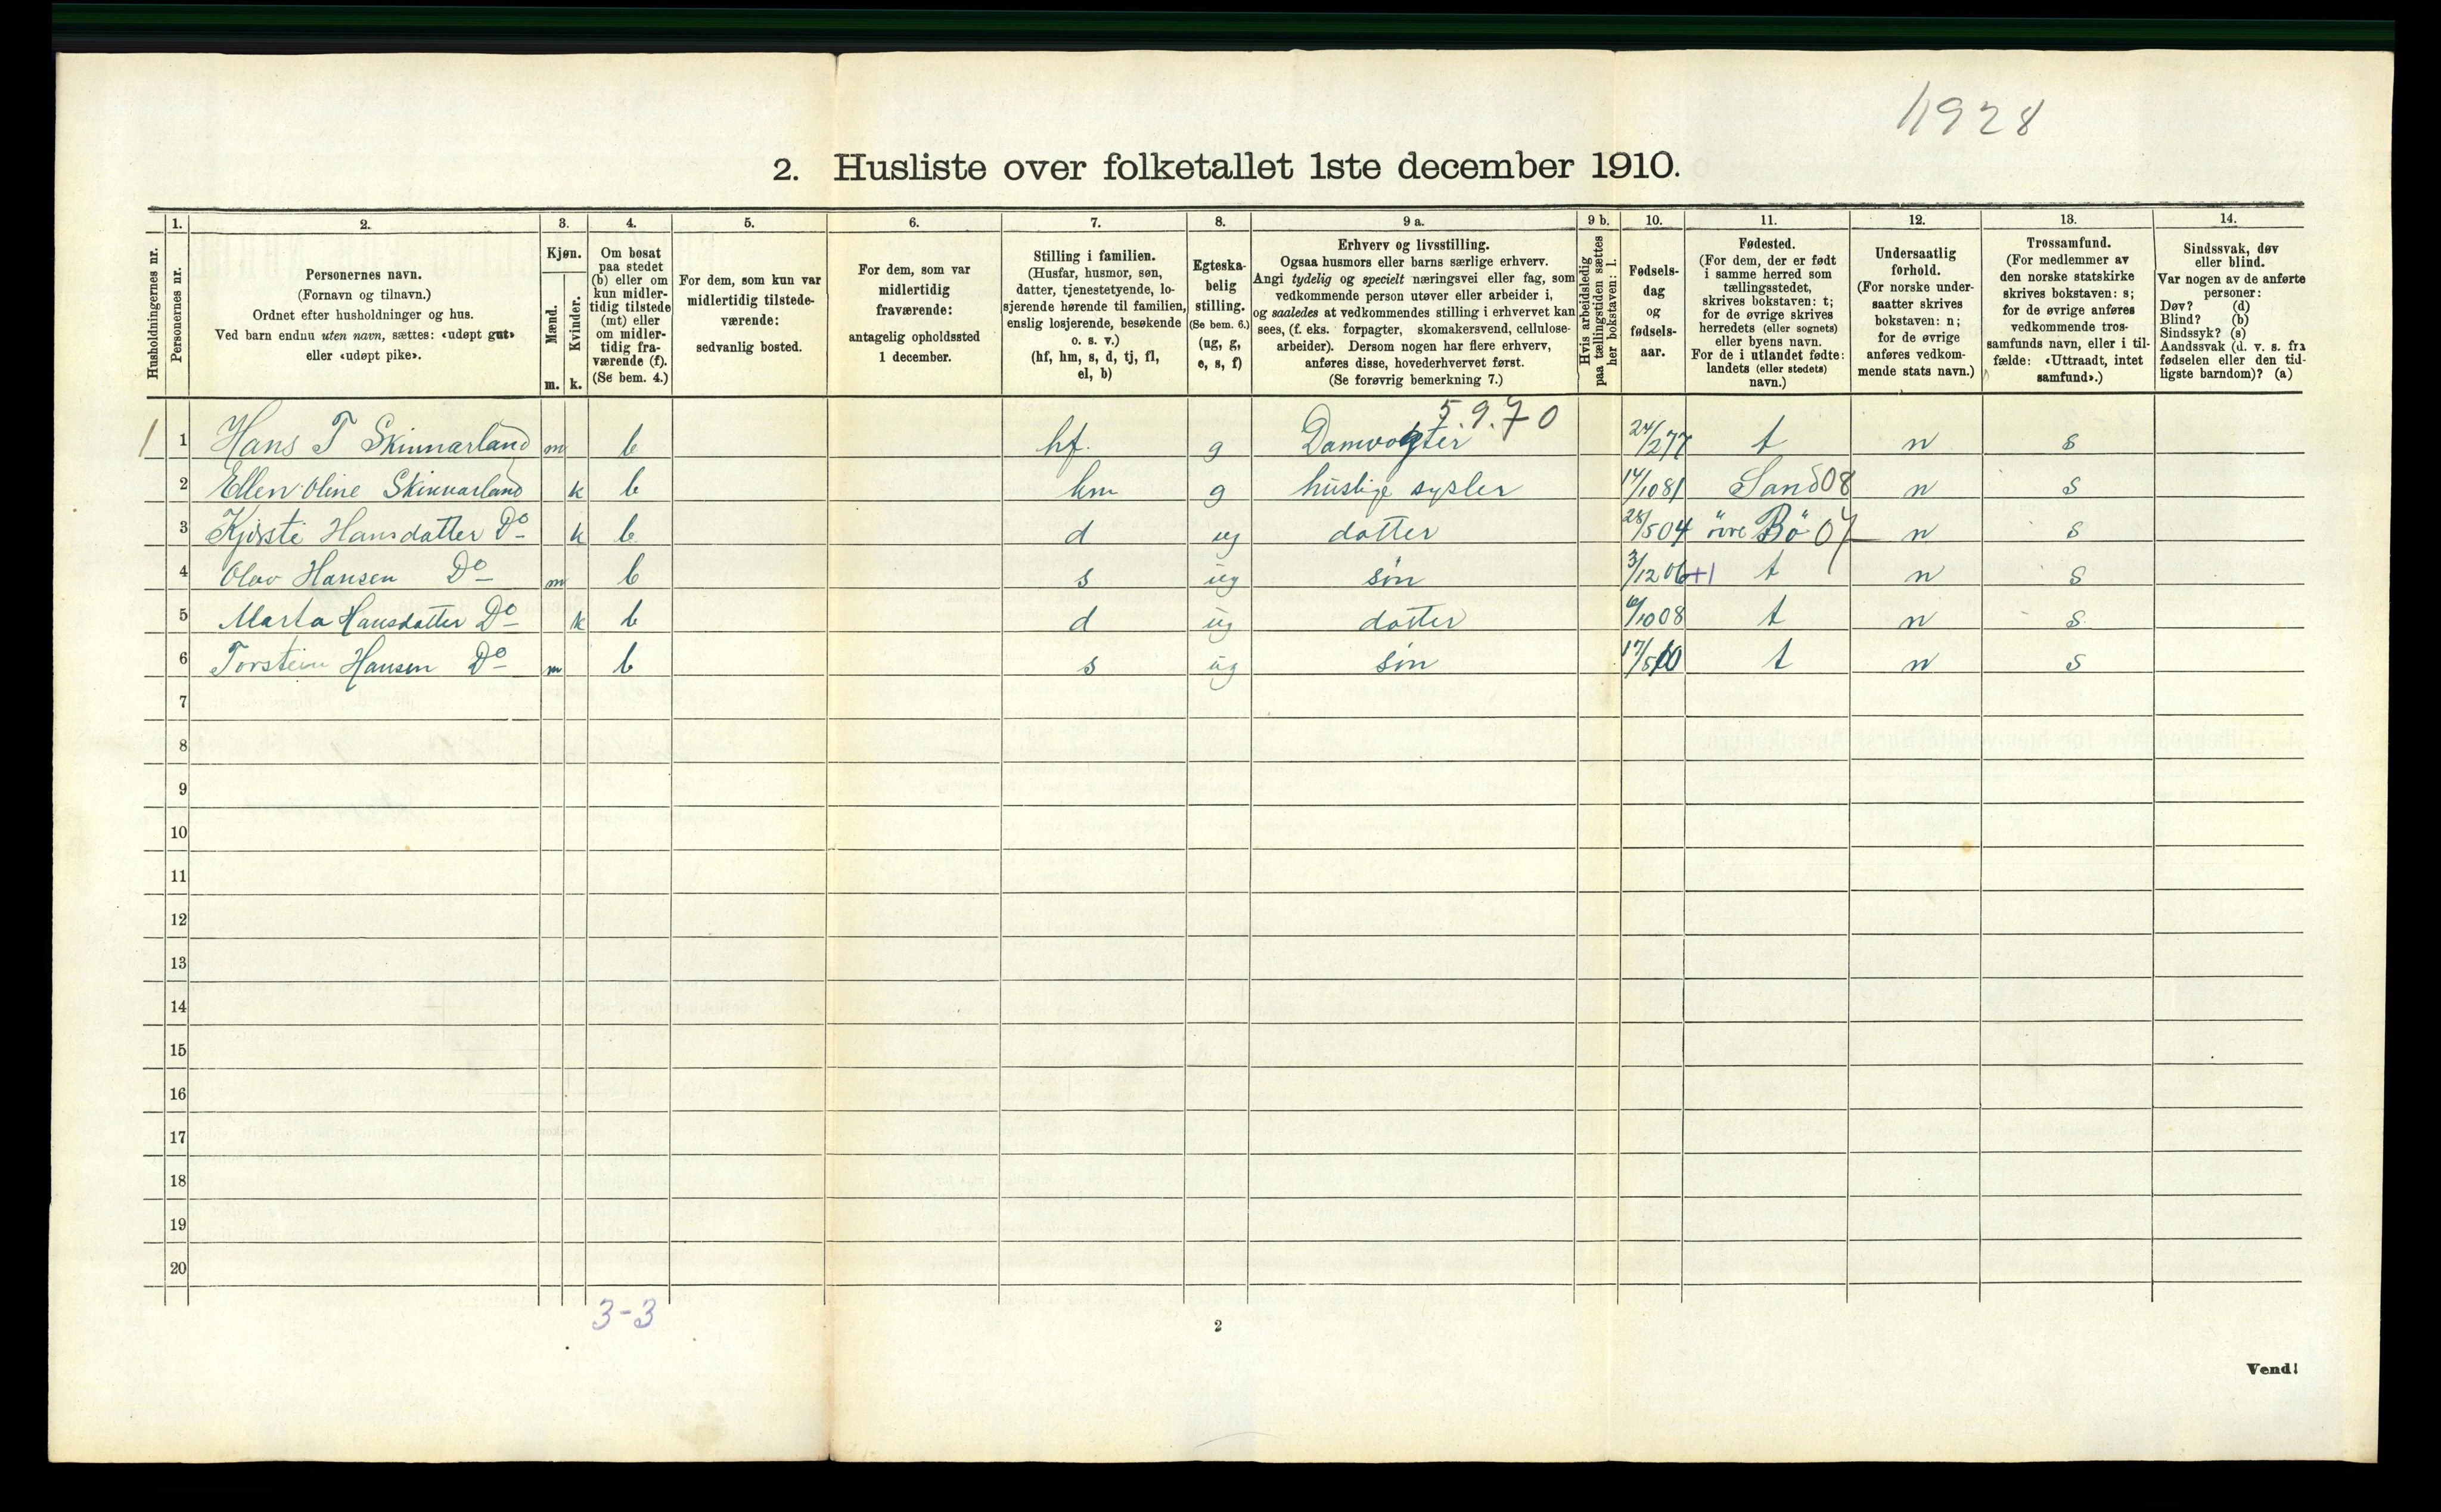 1928
2. Husliste over folketallet 1ste december 1910.
1. 2. 3. 4. 5. 6. 7. 8. 9 a. 9 b. 10. 11. 12. 13. 14.
Husholdningernes nr.
Personernes nr.
Personernes navn.
(Fornavn og tilnavn.)
Ordnet efter husholdninger og hus.
Ved barn endnu uten navn, sættes: «udøpt gut»
eller «udøpt pike».
Kjøn.
Mænd.
Kvinder.
m. k.
Om bosat
paa stedet
(b) eller om
kun midler-
tidig tilstede
(mt) eller
om midler-
tidig fra-
værende (f).
(Se bem. 4.)
For dem, som kun var
midlertidig tilstede-
værende:
sedvanlig bosted.
For dem, som var
midlertidig
fraværende:
antagelig opholdssted
1 december.
Stilling i familien.
(Husfar, husmor, søn,
datter, tjenestetyende, lo-
sjerende hørende til familien,
enslig losjerende, besøkende
o. s. v.)
(hf, hm, s, d, tj, fl,
el, b)
Egteska-
belig
stilling.
(Se bem. 6.)
(ug, g,
e, s, f)
Erhverv og livsstilling.
Ogsaa husmors eller barns særlige erhverv.
Angi tydelig og specielt næringsvei eller fag, som
vedkommende person utøver eller arbeider i,
og saaledes at vedkommendes stilling i erhvervet kan
sees, (f. eks. forpagter, skomakersvend, cellulose-
arbeider). Dersom nogen har flere erhverv,
anføres disse, hovederhvervet først.
(Se forøvrig bemerkning 7.)
Hvis arbeidsledig
paa tællingstiden sættes
her bokstaven: l.
Fødsels-
dag
og
fødsels-
aar.
Fødested.
(For dem, der er født
i samme herred som
tællingsstedet,
skrives bokstaven: t;
for de øvrige skrives
herredets (eller sognets)
eller byens navn.
For de i utlandet fødte:
landets (eller stedets)
navn.)
Undersaatlig
forhold.
(For norske under-
saatter skrives
bokstaven: n;
for de øvrige
anføres vedkom-
mende stats navn.)
Trossamfund.
(For medlemmer av
den norske statskirke
skrives bokstaven: s;
for de øvrige anføres
vedkommende tros-
samfunds navn, eller i til-
fælde: «Uttraadt, intet
samfund».)
Sindssvak, døv
eller blind.
Var nogen av de anførte
personer:
Døv? (d)
Blind? (b)
Sindssyk? (s)
Aandssvak (d. v. s. fra
fødselen eller den tid-
ligste barndom)? (a)
5.9.70
1 1 Hans T Skinnarland m b hf. g Damvogter 24/2 77 t n s
2 Ellen Oline Skinnarland k b hm g huslige sysler 14/10 81 Sand 08 n s
3 Kjersti Hansdatter Do k b d ug datter 28/5 04 øvre Bø 07 n s
4 Olav Hansen Do m b s ug søn 3/12 06 +1 t n s
5 Marta Hansdatter Do k b d ug datter 6/10 08 t n s
6 Torstein Hansen Do m b s ug søn 17/5 10 t n s
7
8
9
10
11
12
13
14
15
16
17
18
19
20
3-3
2
Vend!